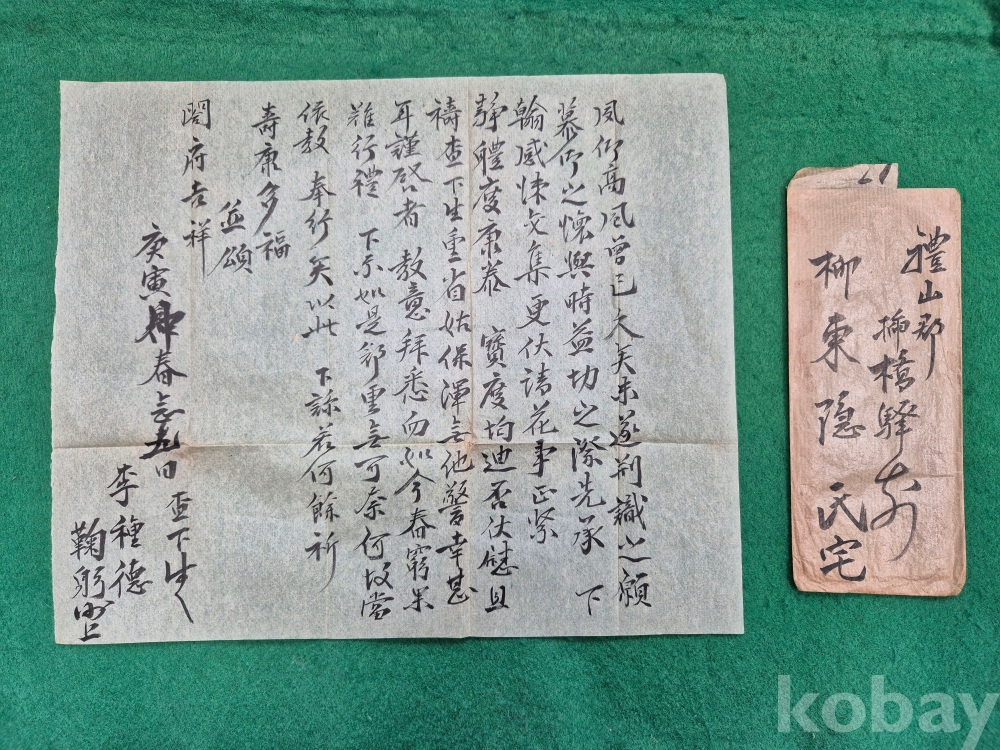 夙仰高風曾已久矣未遂荆識之願
慕仰之懷與時益切之際先承 下
翰感悚交集更伏請花事正緊
靜體度康泰 寶度均迪否伏慰且
禱查下生重省姑保渾無他警幸甚
耳謹啓者 教意拜悉而如今春窮果
難行禮 下示如是鄭重無可奈何故當
依教 奉行矣以此 下諒若何餘祈
壽康多福
並頌
閤府吉祥
庚寅 春念九日 査下生
李種德
鞠躬上
禮山郡 揷橋驛前
柳東隐氏宅
kobay